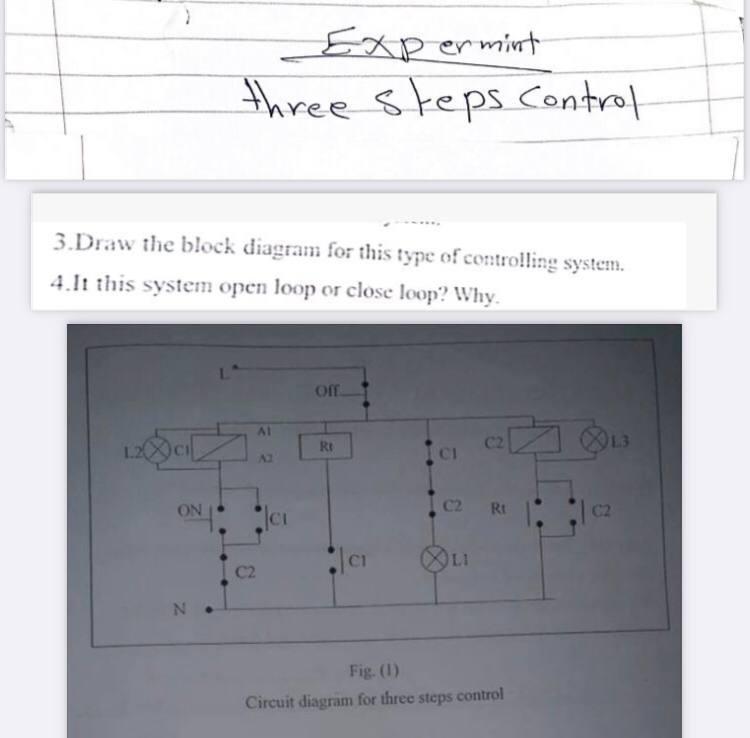 Expermint
three steps Control
3.Draw the block diagram for this type of controlling system.
4.It this system open loop or close loop? Why.
L
Off
L2 C1 A1
A2
Rt
C1
C2
L3
ON
C1
C2
Rt
C2
C2
C1
L1
N
Fig. (1)
Circuit diagram for three steps control